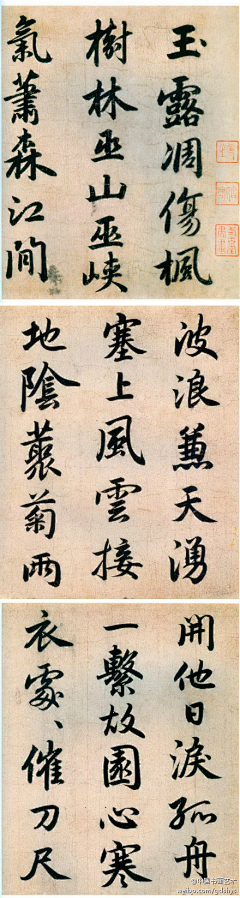 玉露凋傷楓
樹林巫山巫峽
氣蕭森江間
波浪兼天湧
塞上風雲接
地陰叢菊兩
開他日淚孤舟
一繫故園心寒
衣處、催刀尺
@中国书画艺术
weibo.com/gdshys